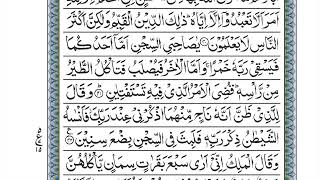 اَمَرَ اَلَّا تَعْبُدُوْٓا اِلَّآ اِيَّاهُ ؕ ذٰلِكَ الدِّيْنُ الْقَيِّمُ وَلٰكِنَّ اَكْثَرَ
النَّاسِ لَا يَعْلَمُوْنَ يٰصَاحِبَيِ السِّجْنِ اَمَّآ اَحَدُكُمَا
فَيَسْقِيْ رَبَّهٗ خَمْرًا ۚ وَاَمَّا الْاٰخَرُ فَيُصْلَبُ فَتَاْكُلُ الطَّيْرُ
مِنْ رَّاْسِهٖ ؕ قُضِيَ الْاَمْرُ الَّذِيْ فِيْهِ تَسْتَفْتِيٰنِ وَقَالَ
لِلَّذِيْ ظَنَّ اَنَّهٗ نَاجٍ مِّنْهُمَا اذْكُرْنِيْ عِنْدَ رَبِّكَ فَاَنْسٰىهُ
الشَّيْطٰنُ ذِكْرَ رَبِّهٖ فَلَبِثَ فِي السِّجْنِ بِضْعَ سِنِيْنَ
وَقَالَ الْمَلِكُ اِنِّيْٓ اَرٰى سَبْعَ بَقَرٰتٍ سِمَانٍ يَّاْكُلُهُنَّ